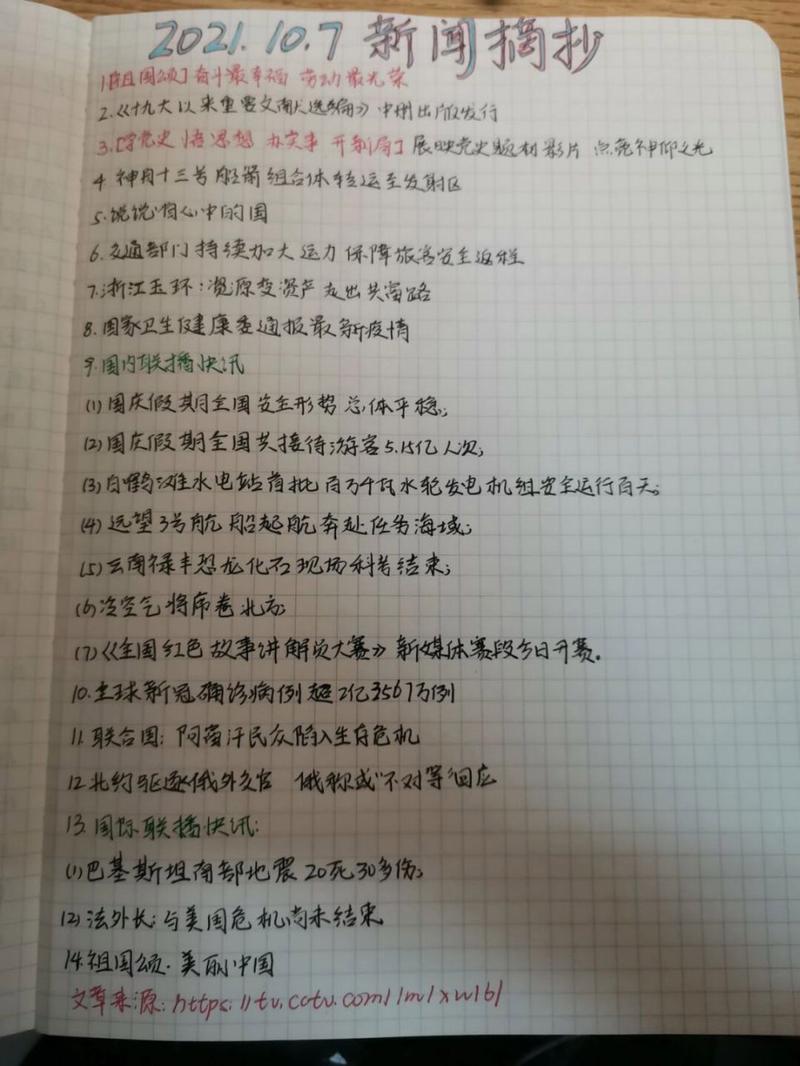 2021.10.7 新闻摘抄
1.[祖国颂]奋斗最幸福 劳动最光荣
2.《十九大以来重要文献选编》中册出版发行
3.[学党史 悟思想 办实事 开新局]展映党史题材影片 点亮神仰之光
4 神舟十三号船箭组合体转运至发射区
5.说说咱心中的国
6.交通部门持续加大运力 保障旅客安全返程
7.浙江玉环:资源变资产 走出共富路
8.国家卫生健康委通报最新疫情
9.国内联播快讯
(1)国庆假期全国安全形势总体平稳;
(2)国庆假期全国共接待游客5.15亿人次;
(3)白鹤滩水电站首批百万千瓦水轮发电机组安全运行百天;
(4)远望3号航船起航奔赴任务海域;
(5)云南禄丰恐龙化石现场科考结束;
(6)冷空气将席卷北方;
(7)《全国红色故事讲解员大赛》新媒体赛段今日开赛.
10.全球新冠确诊病例超2亿3567万例
11.联合国:阿富汗民众陷入生存危机
12.北约驱逐俄外交官 俄称或"不对等"回应
13.国际联播快讯:
(1)巴基斯坦南部地震20死30多伤;
(2)法外长:与美国危机尚未结束
14.祖国颂.美丽中国
文章来源:https://tv.cctv.com/lm/xwlb/